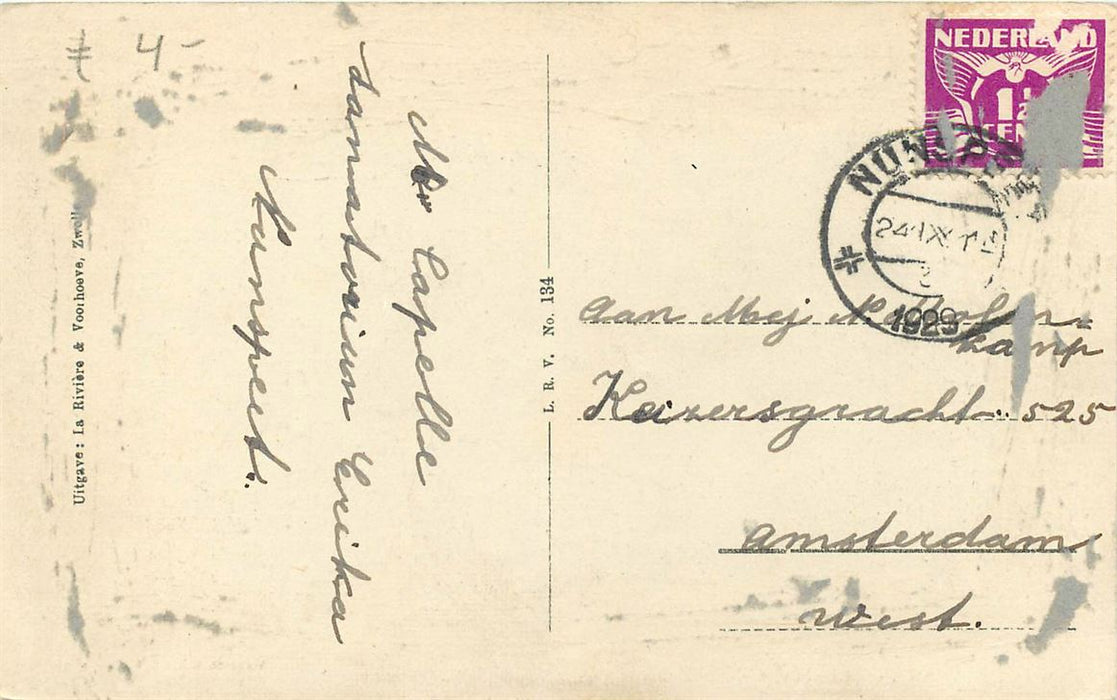 4-
Mr Capelle
Sanatorium Erika
Nunspeet.
Uitgave: La Rivière & Voorhoeve, Zwolle
L. R. V. No. 134
NEDERLAND
1½
CENT
NUNSPEET
24 IX
1929
Aan Mej
kamp
Keizersgracht. 525
Amsterdam
West.